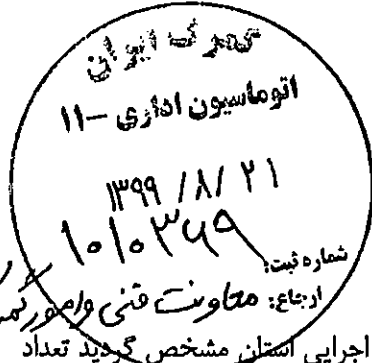 گمرک ایران
اتوماسیون اداری -۱۱
۱۳۹۹ /۸/ ۲۱
۱۰۱۰۳۶۹
شماره ثبت:
ارجاع: معاونت فنی و امور گمر
اجرایی استان مشخص گردید تعداد